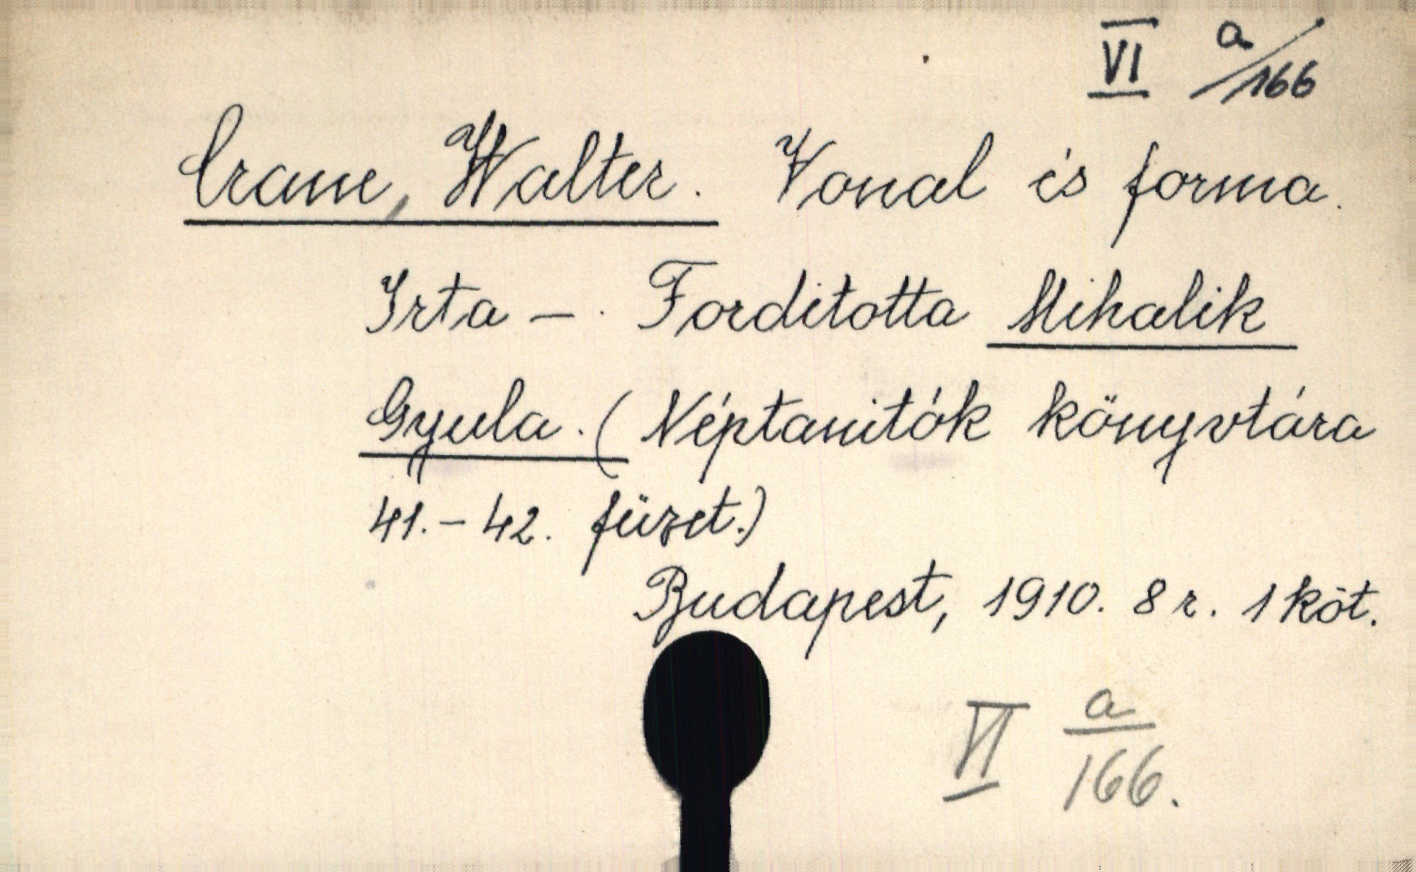 VI a/166
Crane, Walter. Vonal és forma.
Irta - . Forditotta Mihalik
Gyula. (Néptanitók könyvtára
41.-42. füzet.)
Budapest, 1910. 8 r. 1 köt.
VI a/166.